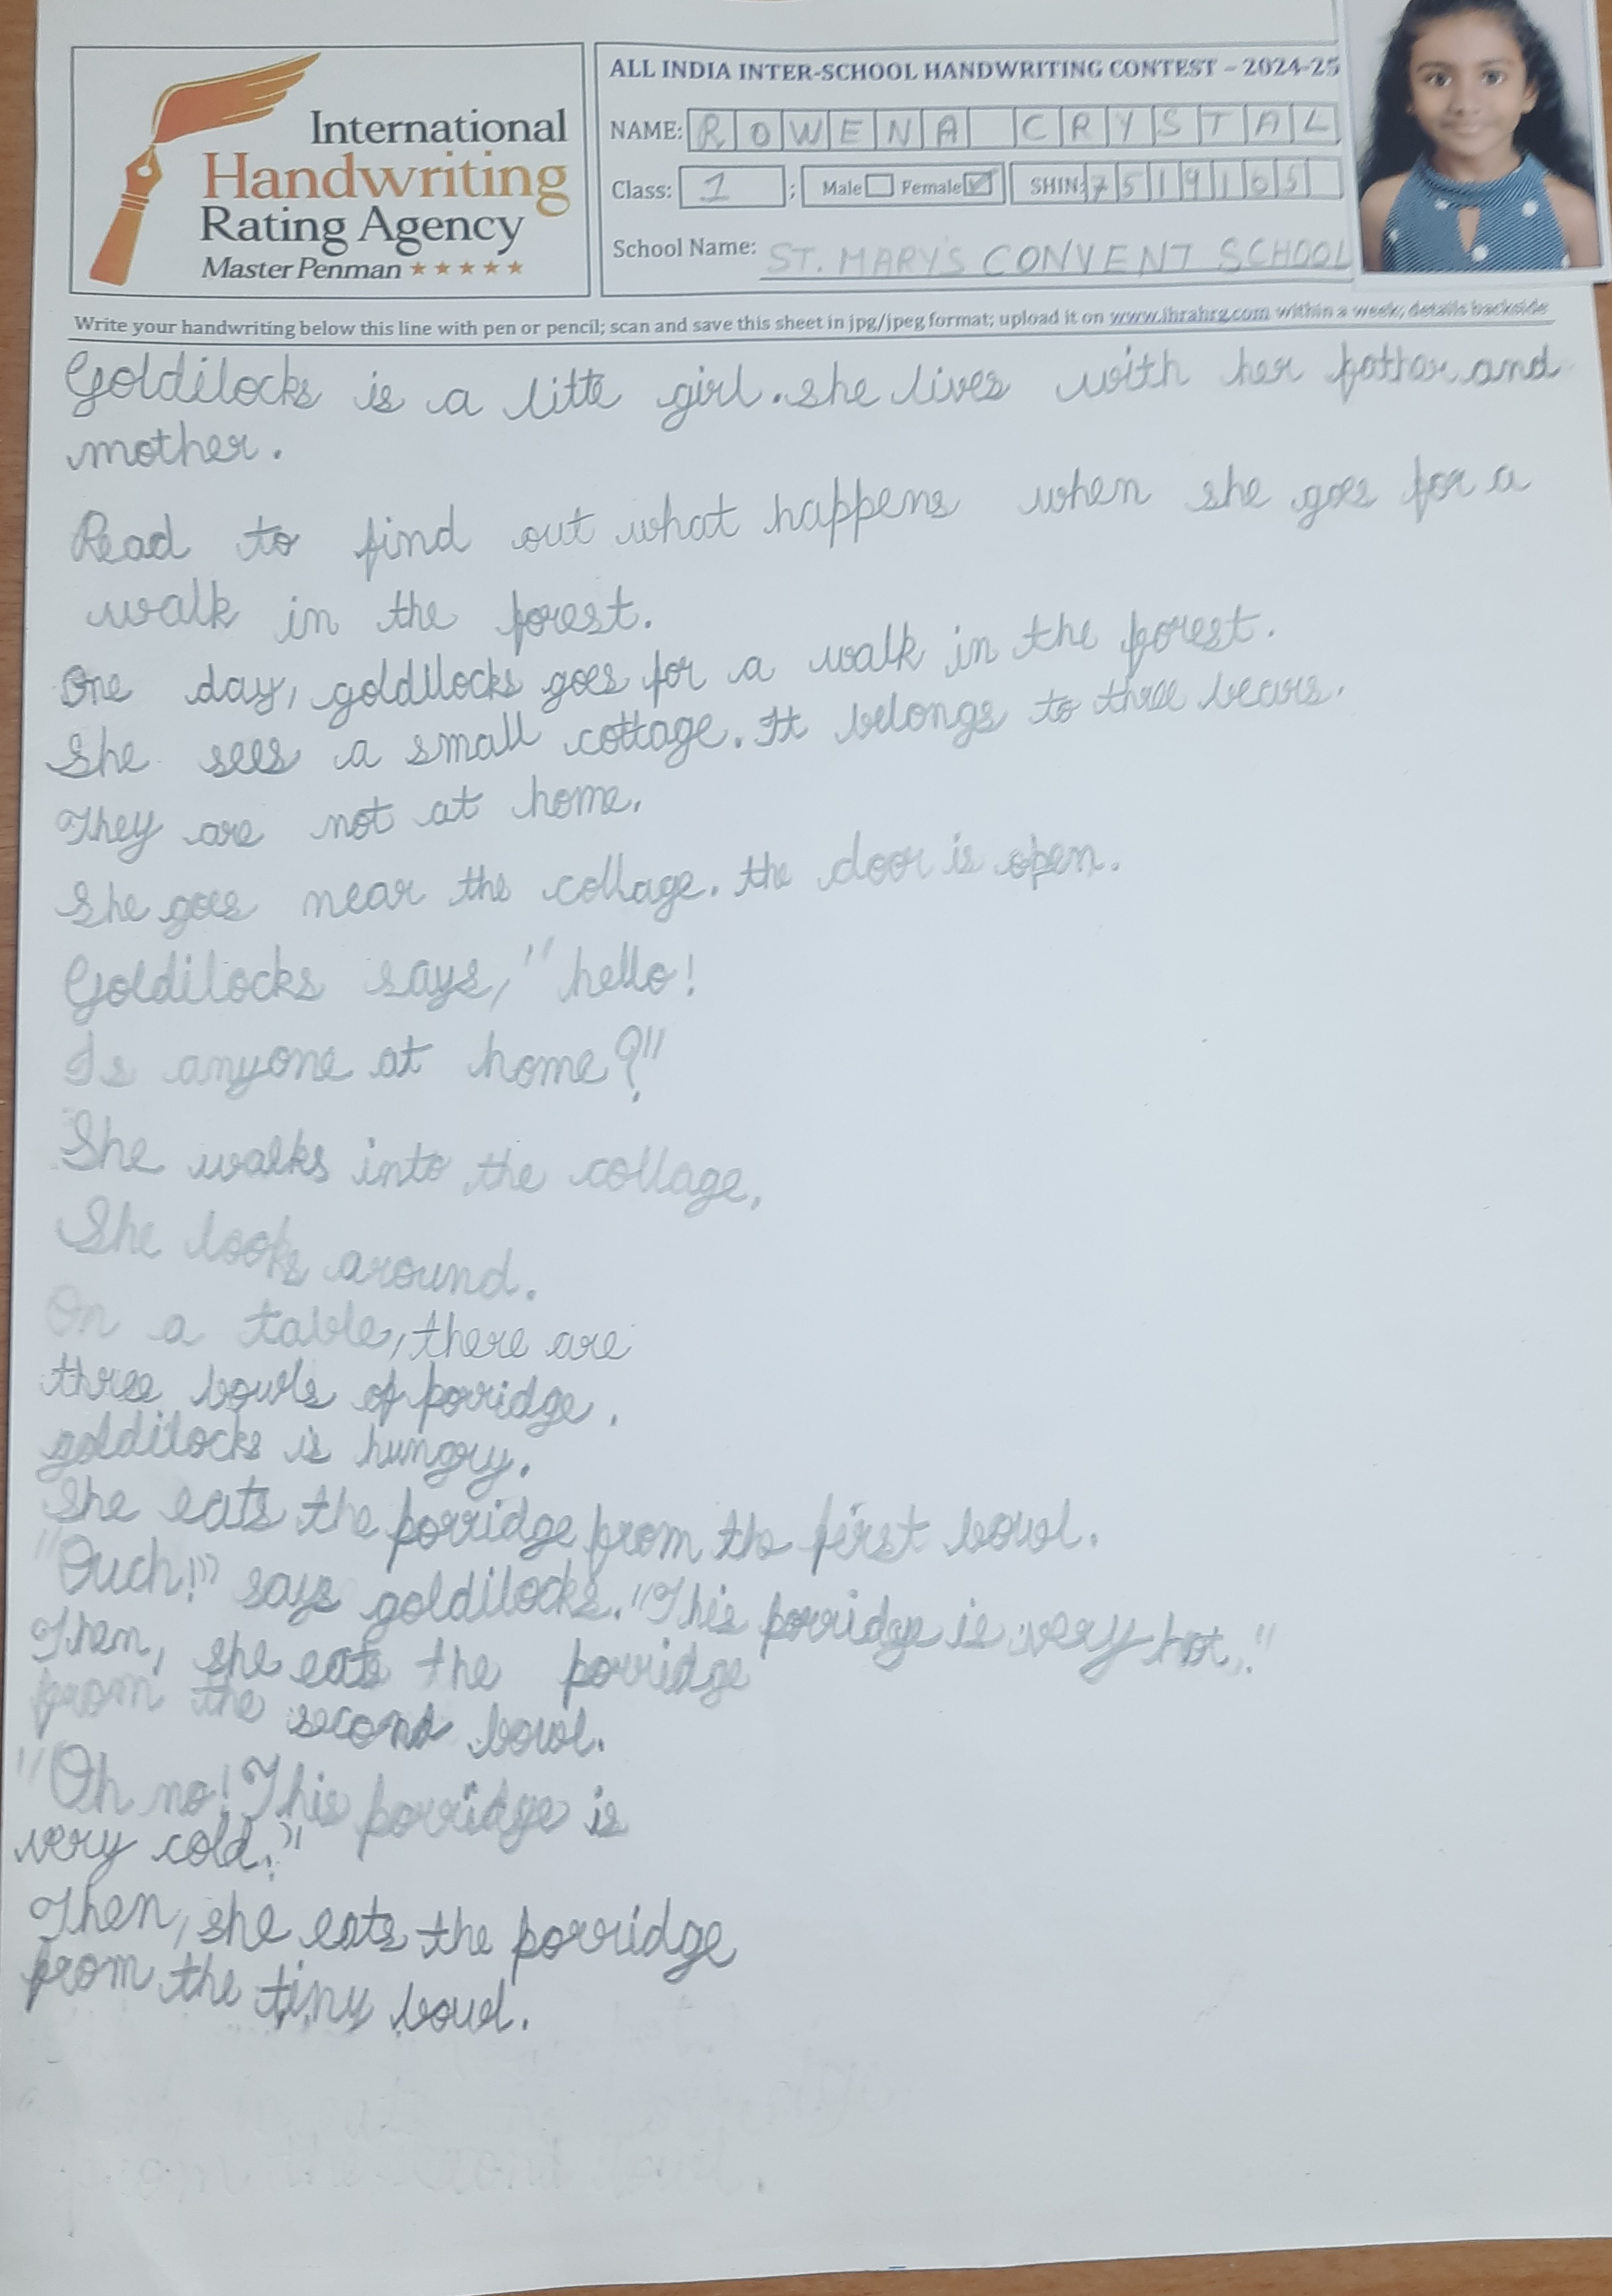 International
Handwriting
Rating Agency
Master Penman
ALL INDIA INTER-SCHOOL HANDWRITING CONTEST – 2024-25
NAME: ROWENA CRYSTAL
Class: 1 ; Male Female SHIN: 7519105
School Name: ST. MARY'S CONVENT SCHOOL
Write your handwriting below this line with pen or pencil; scan and save this sheet in jpg/jpeg format; upload it on www.ihrahrg.com within a week; details backside
Goldilocks is a litte girl. she lives with her fother and
mother.
Read to find out what happens when she goes for a
walk in the forest.
One day, goldilocks goes for a walk in the forest.
She sees a small cottage. It belongs to three bears.
They are not at home.
She goes near the collage. the door is open.
Goldilocks says, "hello!
Is anyone at home?"
She walks into the collage,
She looks around.
On a table, there are
three bowls of porridge.
goldilocks is hungry.
She eats the porridge from the first bowl.
"Ouch!" says goldilocks. "This porridge is very hot."
Then, she eats the porridge
from the second bowl.
"Oh no! This porridge is
very cold."
Then, she eats the porridge
from the tiny bowl.